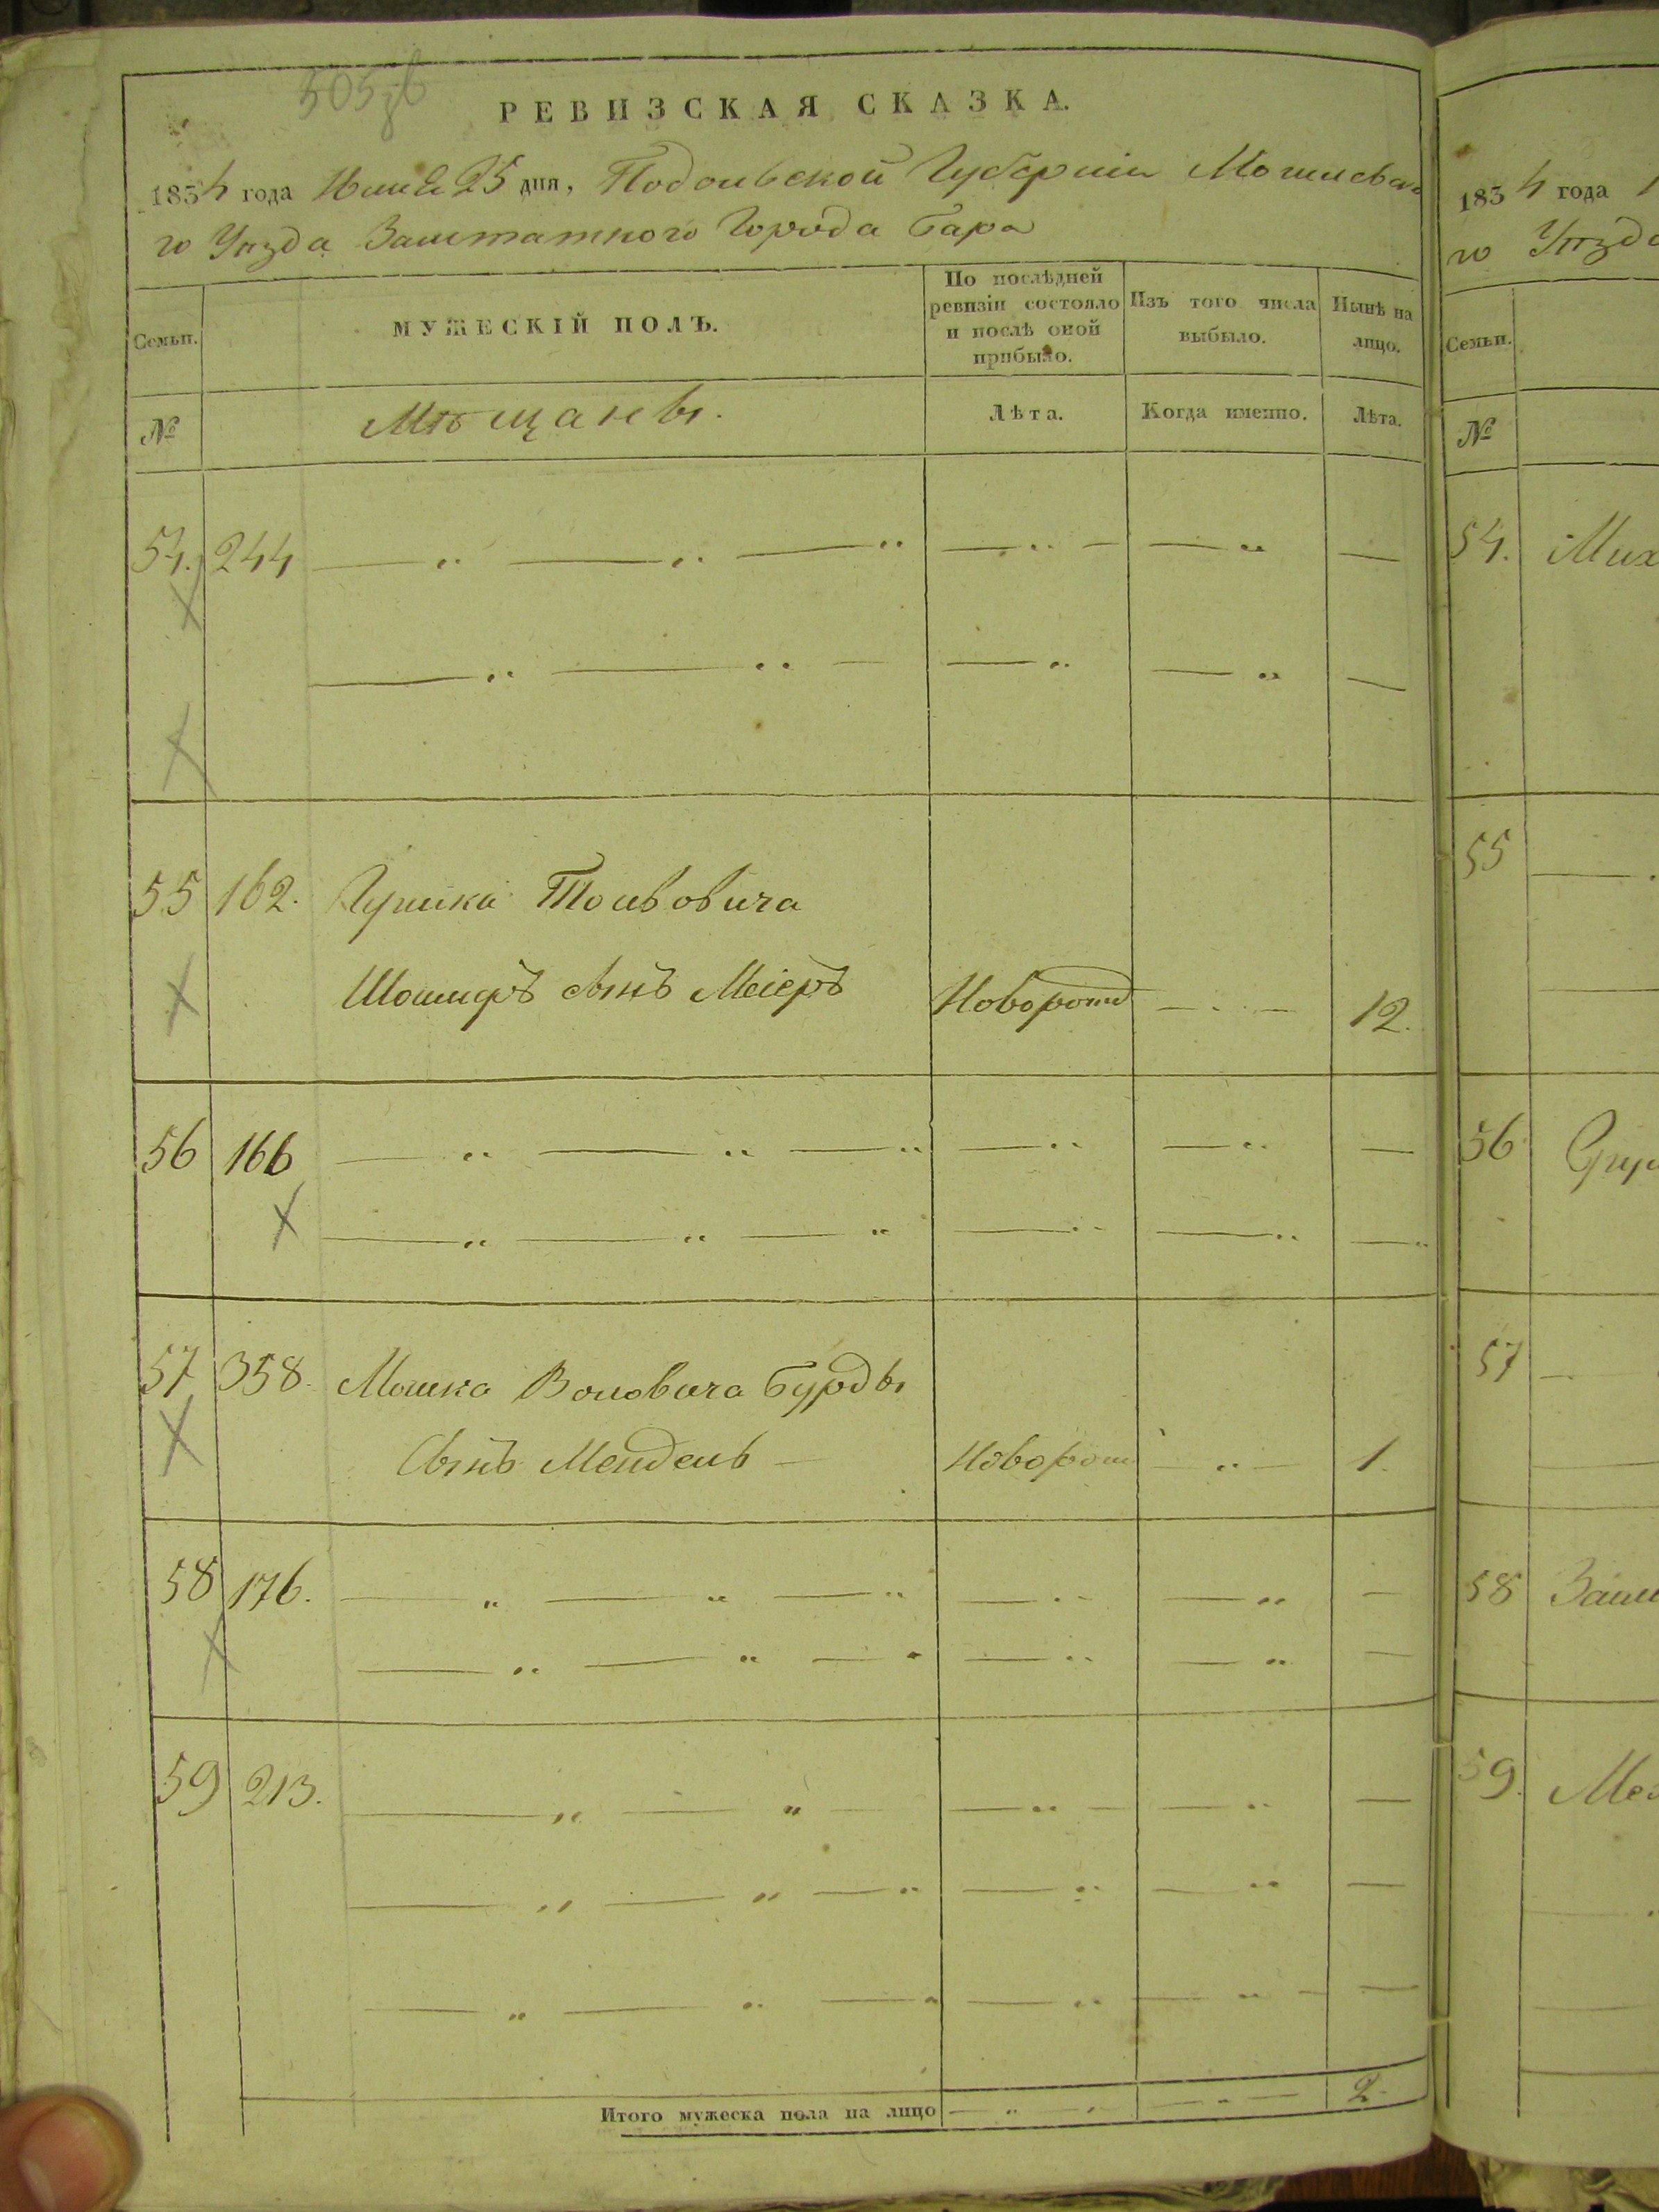 505
РЕВИЗСКАЯ СКАЗКА.
1834 года Июня 25 дня, Подольской Губерніи Могилевска
го Уѣзда Заштатного Города Бара
Семьи.
МУЖЕСКІЙ ПОЛЪ.
По послѣдней ревизіи состояло и послѣ оной прибыло.
Изъ того числа выбыло.
Нынѣ на лицо.
№
Мѣщаны.
Лѣта.
Когда именно.
Лѣта.
54. 244 — „ — „ — „ — „ — — „ —
— „ — „ — — „ — „ —
55 162. Гершка Тольвовича
сынъ Меіеръ Новорож — . — 12.
56 166 — „ — „ — „ — „ — „ —
— „ — „ — „ — „ — „ — „
57 358. Мошка Воловича Бурды
Сынъ Мендель — Новорож — „ — 1.
58 176. — „ — „ — „ — „ — „ —
— „ — „ — „ — „ — „ —
59 213. — „ — „ — — „ — — „ —
— „ — „ — „ — „ — „ —
— „ — „ — „ — „ — „ — —
Итого мужеска пола на лицо — „ — „ — „ — 2
1834 года
го Уѣзд
Семьи.
№
54. Мих
55
56
57
58
59. Ме